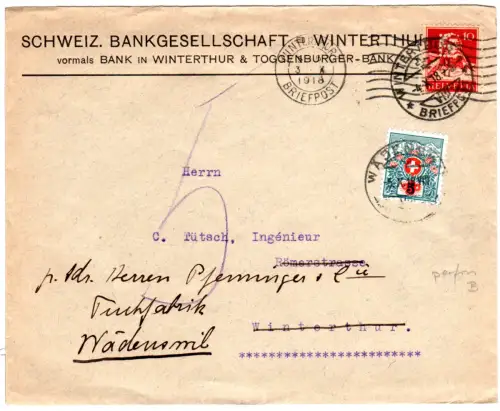 SCHWEIZ. BANKGESELLSCHAFT WINTERTHUR
vormals BANK IN WINTERTHUR & TOGGENBURGER-BANK
WINTERTHUR
3 X
1918
BRIEFPOST
10
HELVETIA
WINTERTHUR
BRIEFPOST
WÄDENSWIL
5
5
Herrn
C. Tütsch, Ingénieur
Römerstrasse
p. Adr. Herren Pfenninger & Cie
Tuchfabrik
Wädenswil
Winterthur.
************************
perfin
B